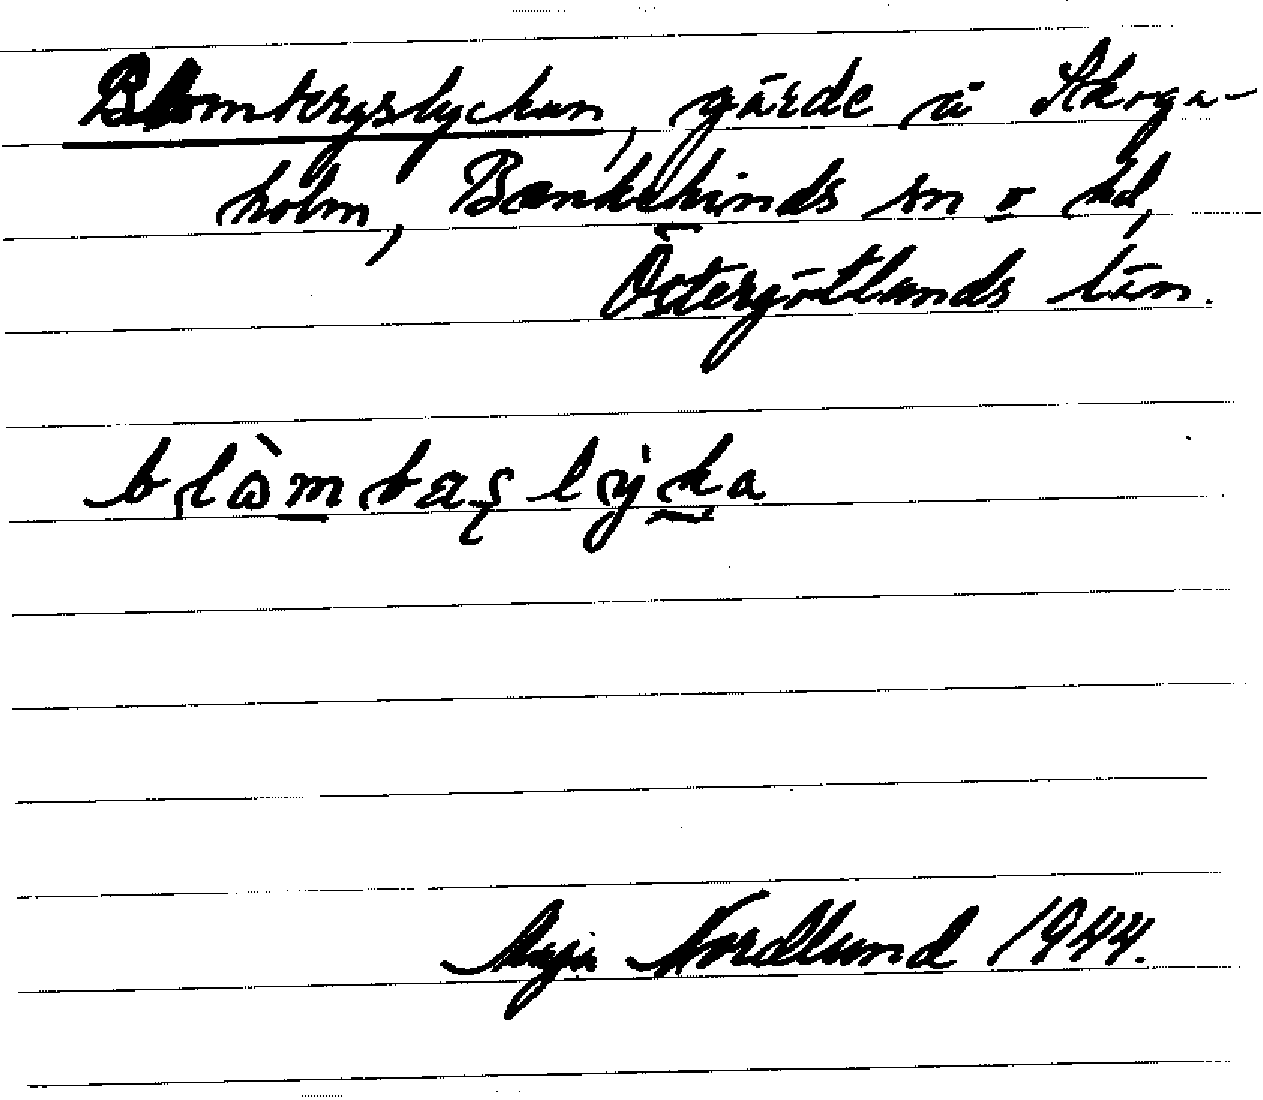 Blombergslyckan, gärde å Skoga-
holm, Bankekinds sn o hd,
Östergötlands län.
blòmbaʂlýka
Maja Nordlund 1944.